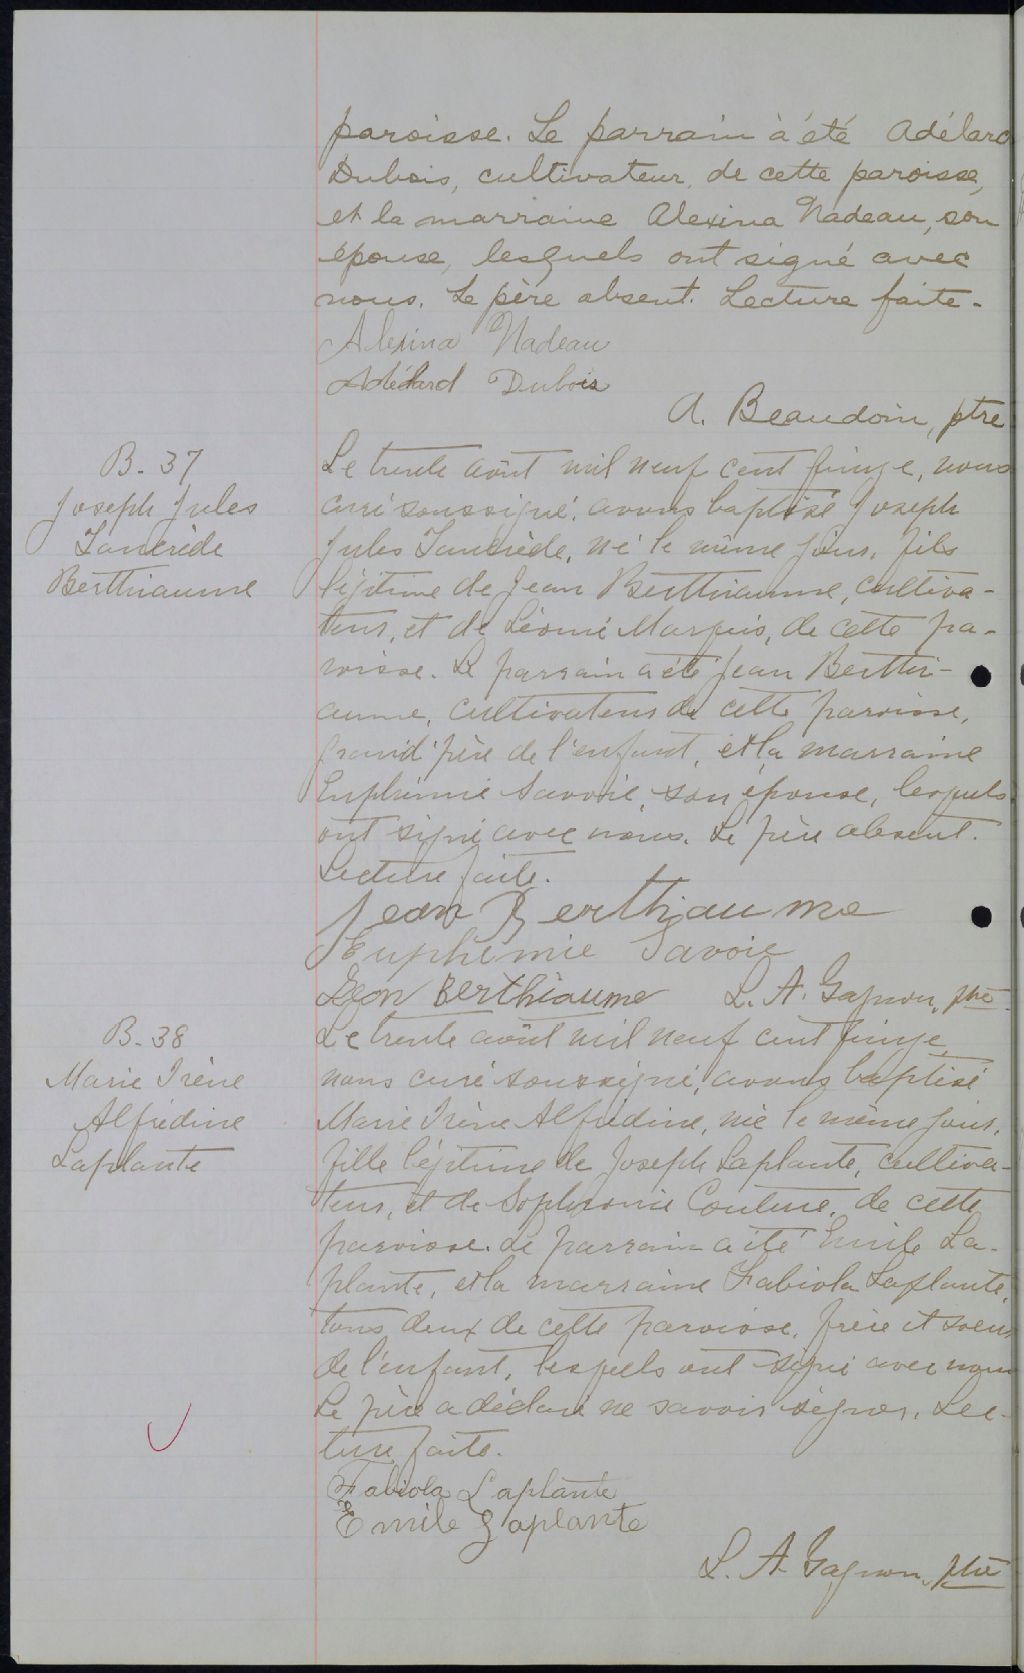 paroisse. Le parrain à été Adélard
Dubois, cultivateur, de cette paroisse,
et la marraine Alexina Nadeau, son
épouse, lesquels ont signé avec
nous. Le père absent. Lecture faite.
Alexina Nadeau
Adélard Dubois
A. Beaudoin, ptre
B. 37
Joseph Jules
Tancrède
Berthiaume
Le trente août mil neuf cent quinze, nous
curé soussigné, avons baptisé Joseph
Jules Tancrède, né le même jour, fils
légitime de Jean Berthiaume, cultiva-
teur, et de Léonie Marquis, de cette pa-
roisse. Le parrain a été Jean Berthi-
aume, cultivateur de cette paroisse,
grand'père de l'enfant, et la marraine
Euphémie Savoie, son épouse, lesquels
ont signé avec nous. Le père absent.
Lecture faite.
Jean Berthiaume
Euphémie Savoie
Léon Berthiaume L. A. Gagnon, ptre
B. 38
Marie Irène
Alfrédine
Laplante
Le trente août mil neuf cent quinze,
nous curé soussigné, avons baptisé
Marie Irène Alfrédine, née le même jour,
fille légitime de Joseph Laplante, cultiva-
teur, et de Sophronie Couture, de cette
paroisse. Le parrain a été Emile La-
plante, et la marraine Fabiola Laplante,
tous deux de cette paroisse, frère et soeur
de l'enfant, lesquels ont signé avec nous
Le père a déclaré ne savoir signer. Lec-
ture faite.
Fabiola Laplante
Emile Laplante
L. A. Gagnon, ptre